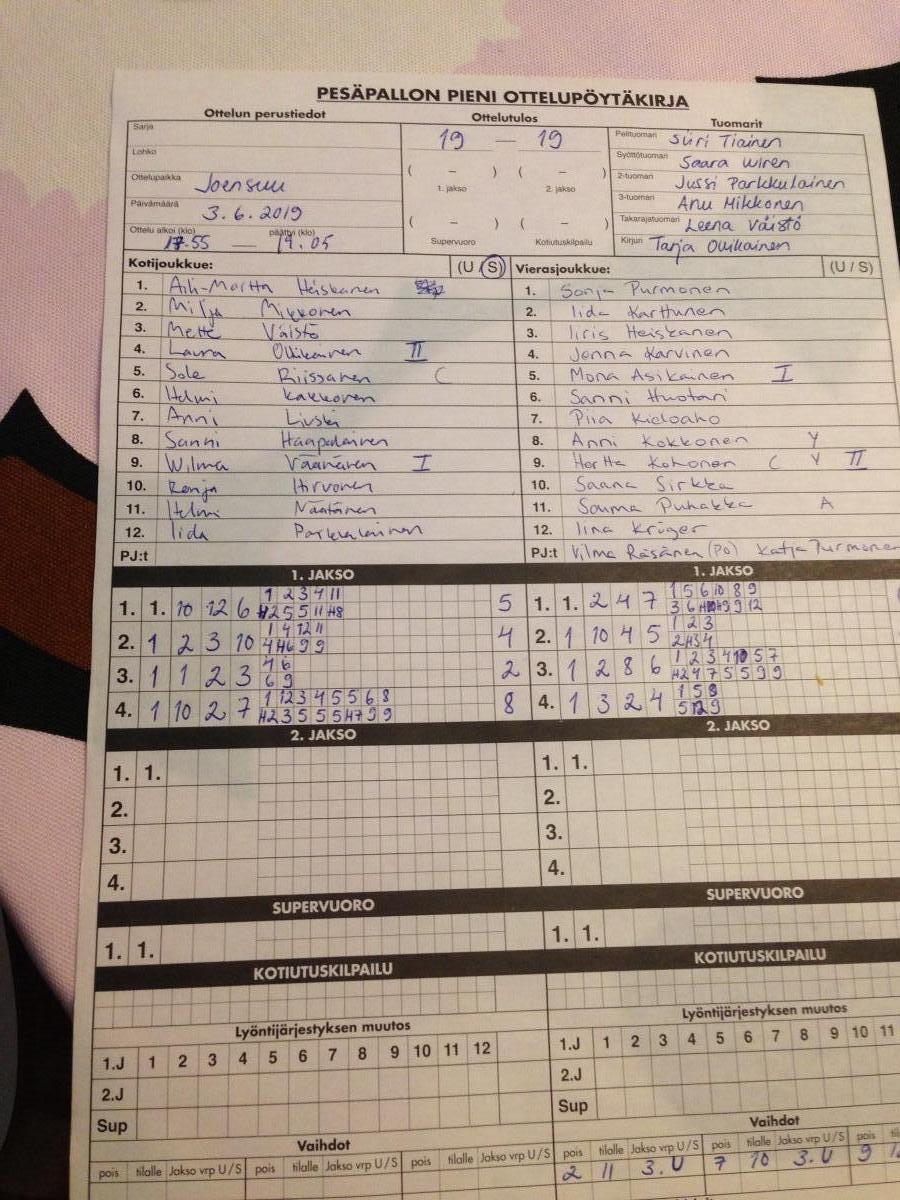 PESÄPALLON PIENI OTTELUPÖYTÄKIRJA
Ottelun perustiedot Ottelutulos Tuomarit
Sarja 19 — 19 Pelituomari Siiri Tiainen
Lohko Syöttötuomari Saara Wiren
( – ) ( – ) 2-tuomari Jussi Parkkulainen
Ottelupaikka Joensuu 1. jakso 2. jakso 3-tuomari Anu Mikkonen
Päivämäärä 3.6.2019 ( – ) ( – ) Takarajatuomari Leena Väistö
Ottelu alkoi (klo) päättyi (klo) 19.05 Supervuoro Kotiutuskilpailu Kirjuri Tarja Ollikainen
Kotijoukkue: (U / S) Vierasjoukkue: (U / S)
1. Aili-Martta Heiskanen 1. Sonja Purmonen
2. Milja Mikkonen 2. Iida Karttunen
3. Mette Väistö 3. Iiris Heiskanen
4. Laura Ollikainen II 4. Jenna Karvinen
5. Sole Riissanen C 5. Mona Asikainen I
6. Helmi Kakkonen 6. Sanni Huotari
7. Anni Livski 7. Piia Kieloaho
8. Sanni Haapalainen 8. Anni Kokkonen Y
9. Wilma Väänänen I 9. Hertta Kohonen C Y II
10. Ronja Hirvonen 10. Saana Sirkka
11. Helmi Näätänen 11. Soma Puhakka A
12. Iida Parkkulainen 12. Iina Krüger
PJ:t PJ:t Vilma Räsänen (PO) Katja Purmonen
1. JAKSO 1. JAKSO
1. 1. 10 12 6 1 2 3 4 11 5 1. 1. 2 4 7 1 5 6 10 8 9
2. 1 2 3 10 1 4 12 11 4 2. 1 10 4 5 1 2 3
3. 1 1 2 3 4 6 2 3. 1 2 8 6
6 9
4. 1 10 2 7 1 12 3 4 5 5 6 8 8 4. 1 3 2 4 1 5 8
2. JAKSO 2. JAKSO
1. 1. 1. 1.
2. 2.
3. 3.
4. 4.
SUPERVUORO SUPERVUORO
1. 1. 1. 1.
KOTIUTUSKILPAILU KOTIUTUSKILPAILU
Lyöntijärjestyksen muutos Lyöntijärjestyksen muutos
1.J 1 2 3 4 5 6 7 8 9 10 11 12 1.J 1 2 3 4 5 6 7 8 9 10 11
2.J 2.J
Sup Sup
Vaihdot Vaihdot
pois tilalle Jakso vrp U / S pois tilalle Jakso vrp U / S pois tilalle Jakso vrp U / S pois tilalle Jakso vrp U / S pois tilalle Jakso vrp U / S pois
2 11 3.U 7 10 3.U 9